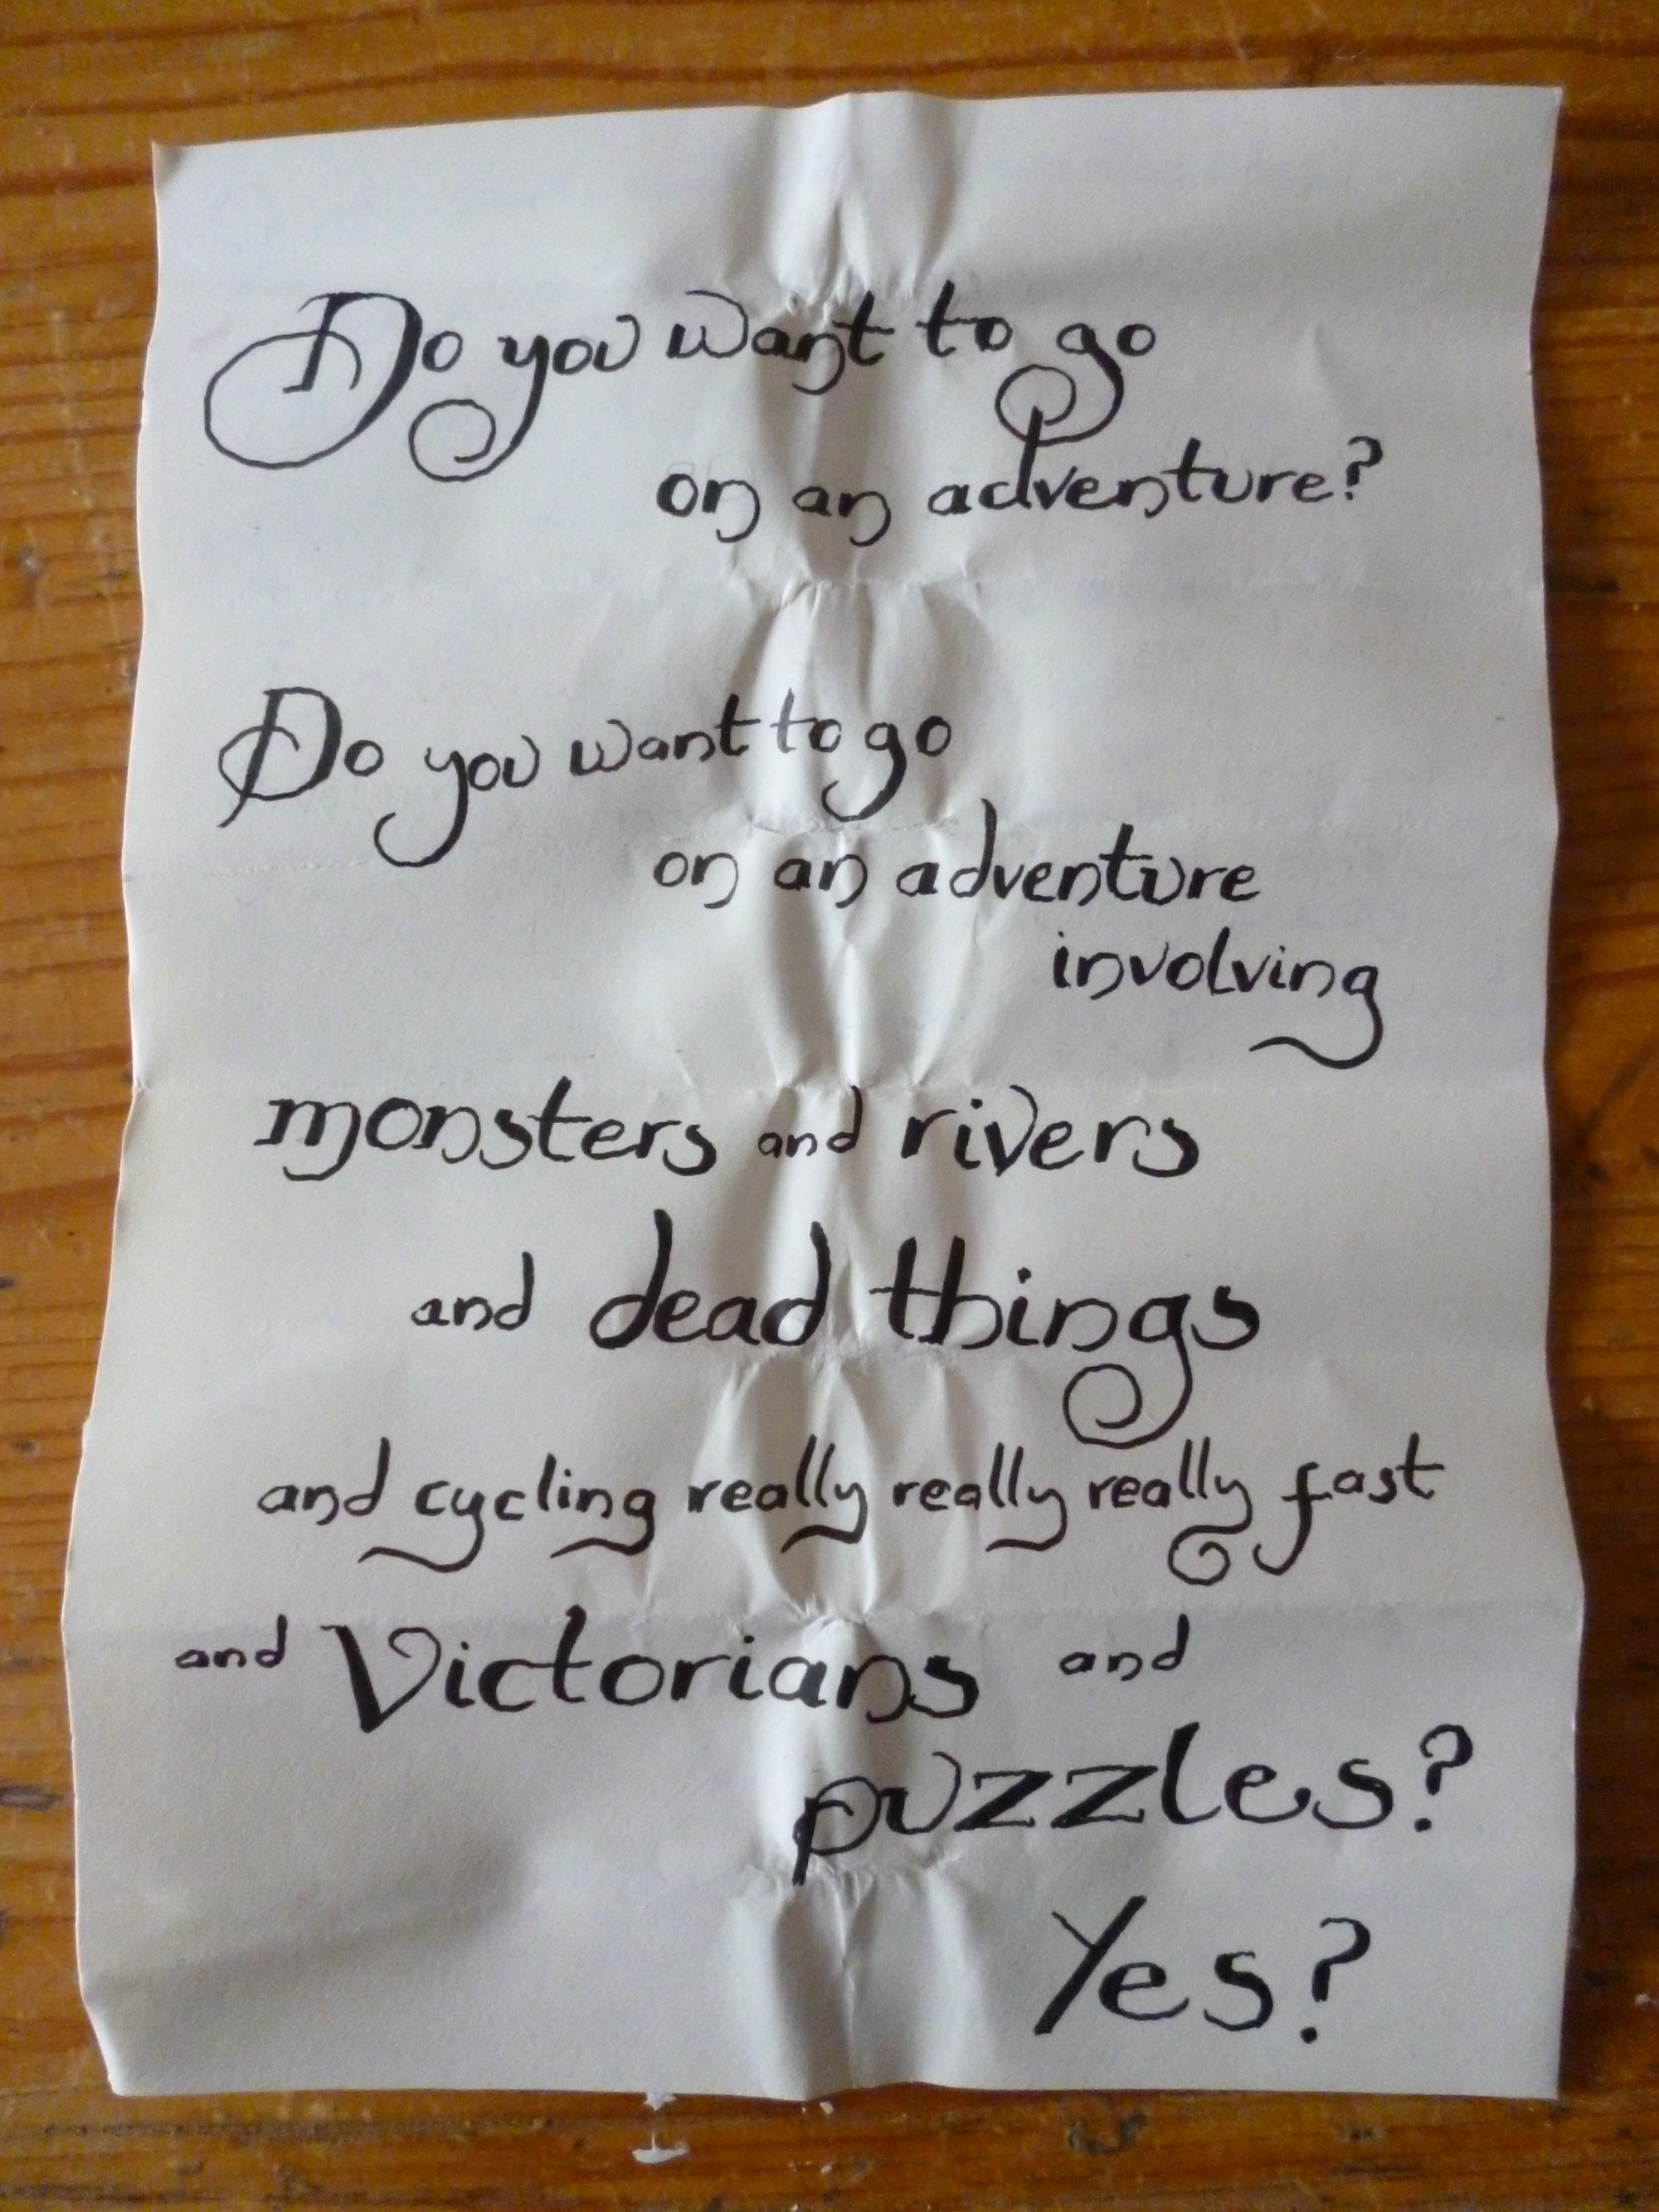 Do you want to go
on an adventure?
Do you want to go
on an adventure
involving
monsters and rivers
and dead things
and cycling really really really fast
and Victorians and
puzzles?
Yes?